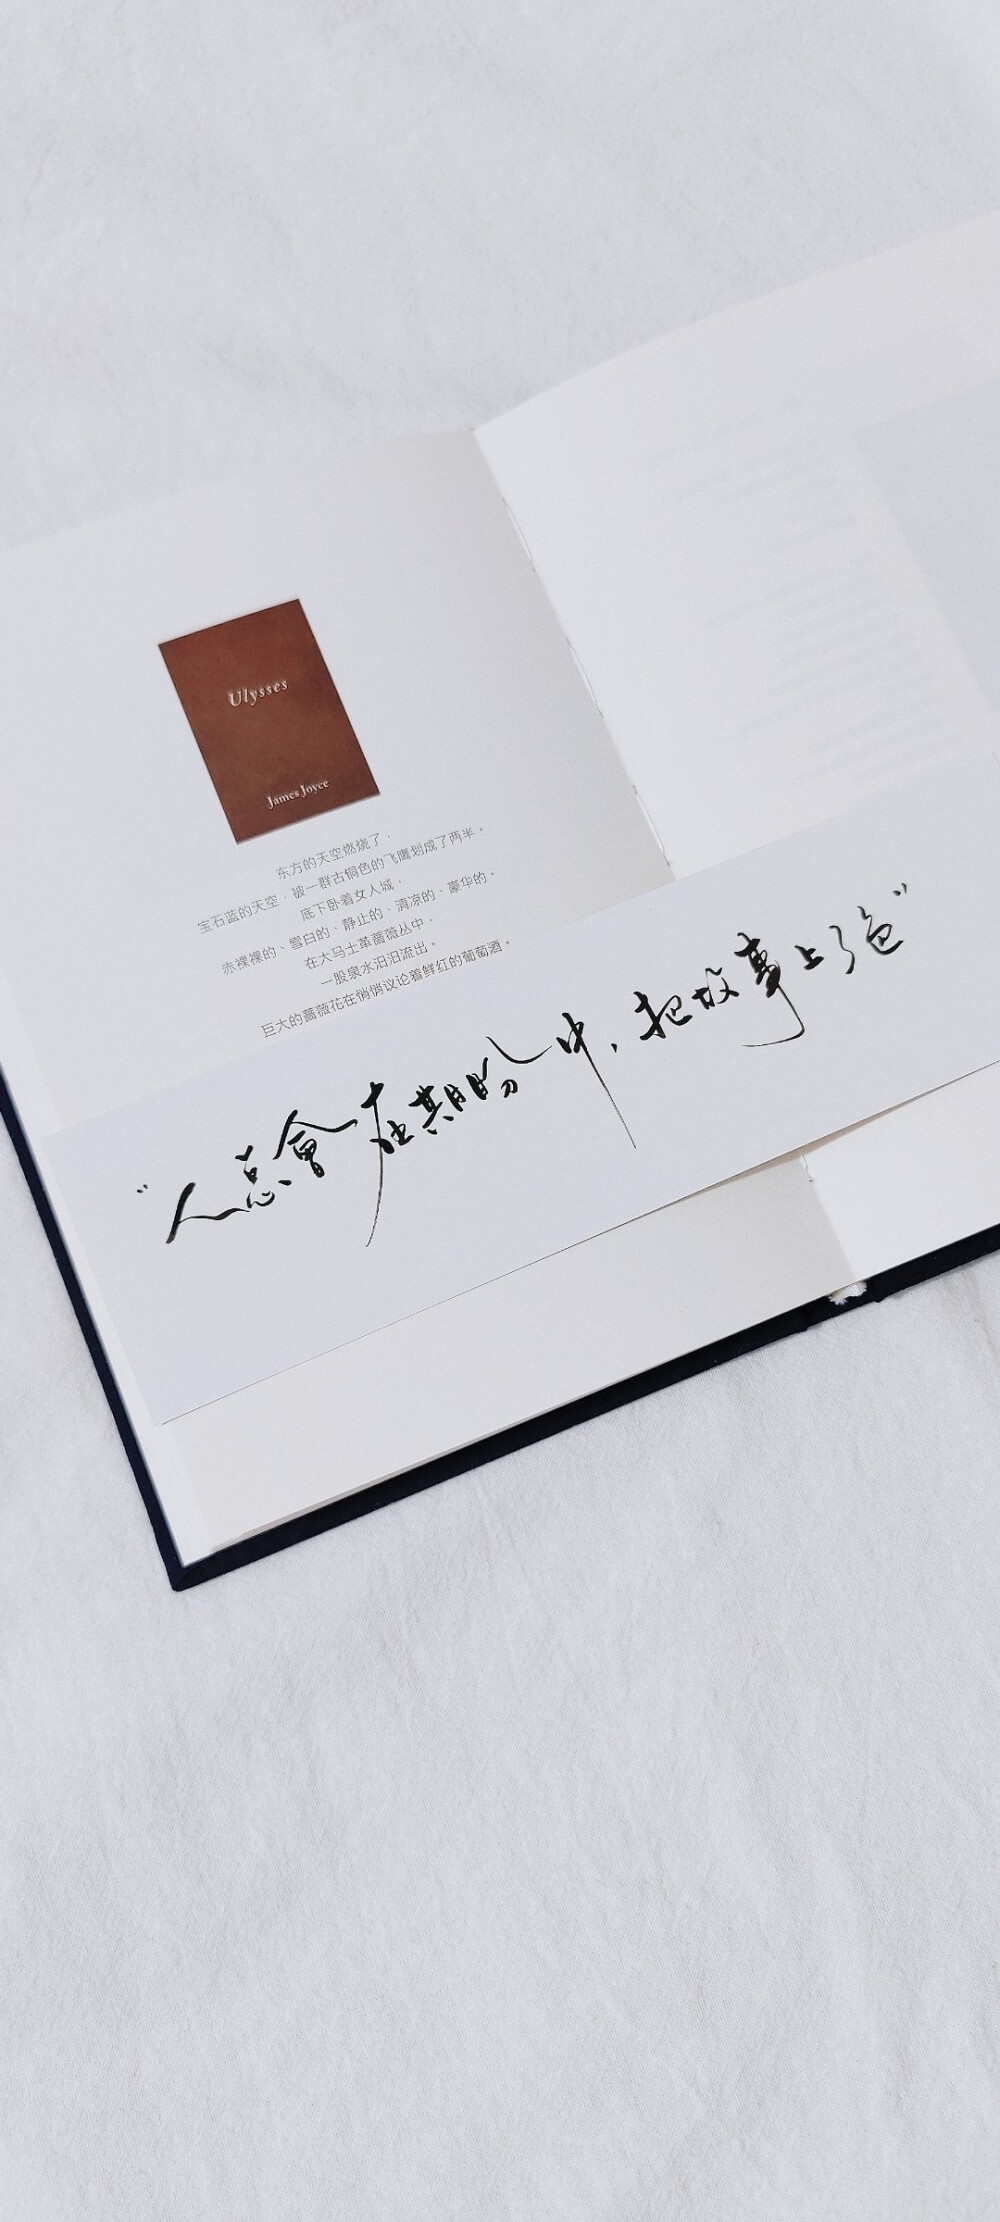 Ulysses
James Joyce
东方的天空燃烧了，
宝石蓝的天空，被一群古铜色的飞鹰划成了两半。
底下卧着女人城，
赤裸裸的、雪白的、静止的、清凉的、豪华的。
在大马士革蔷薇丛中，
一股泉水汩汩流出。
巨大的蔷薇花在悄悄议论着鲜红的葡萄酒。
“人总會在期盼中，把故事上了色”